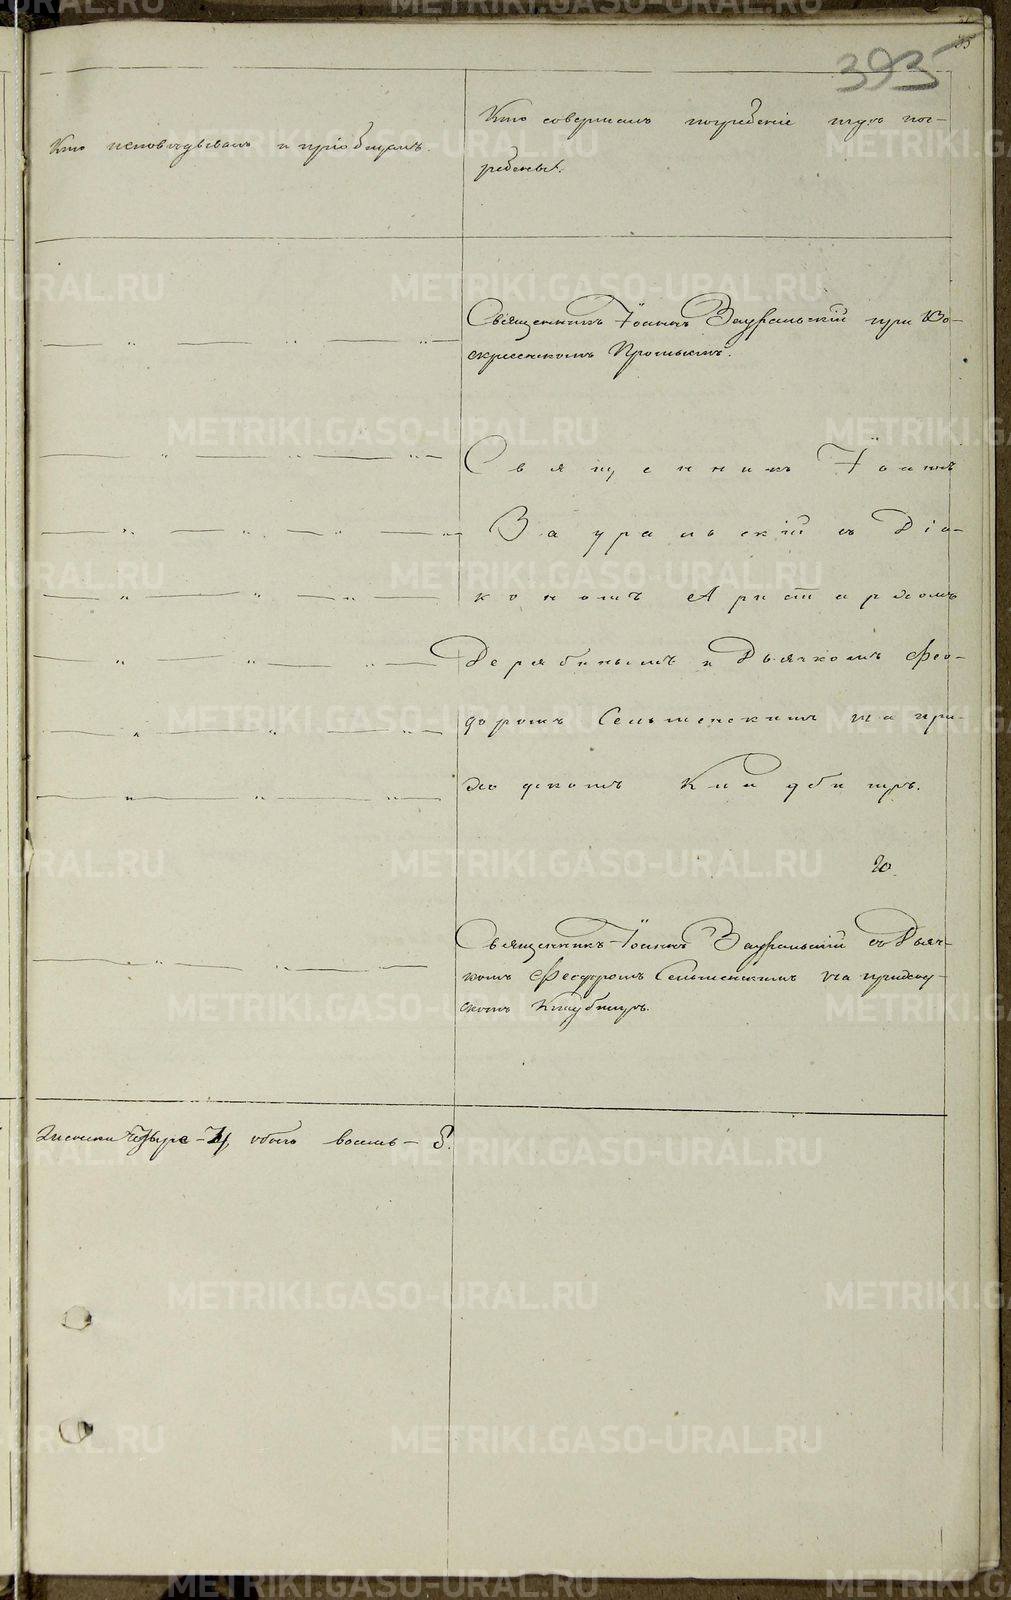 393
35
Кто исповѣдывалъ и пріобщалъ.
Кто совершалъ погребеніе и гдѣ пог-
ребены.
Священникъ Іоаннъ Зауральскій при Во-
скресенскомъ Промыслѣ.
Священникъ Іоаннъ
Зауральскій съ Діа-
кономъ Аристархомъ
Дерябинымъ и Дьячкомъ Фео-
доромъ Сельменскимъ на при-
ходскомъ Кладбищѣ.
Священникъ Іоаннъ Зауральскій съ Дьяч-
комъ Феодоромъ Сельменскимъ на приход-
скомъ Кладбищѣ.
Женска четыре - 4, обоего восемь - 8.
METRIKI.GASO-URAL.RU